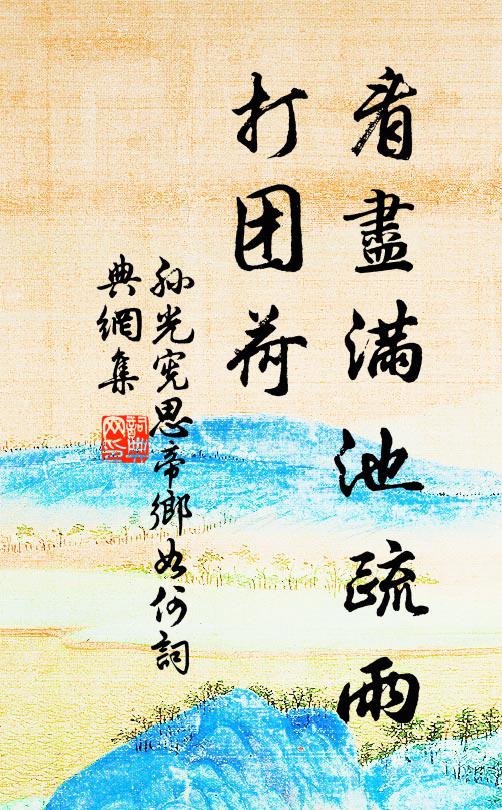 看盡滿池疏雨
打团荷
孙光宪思帝鄉如何詞
典網集